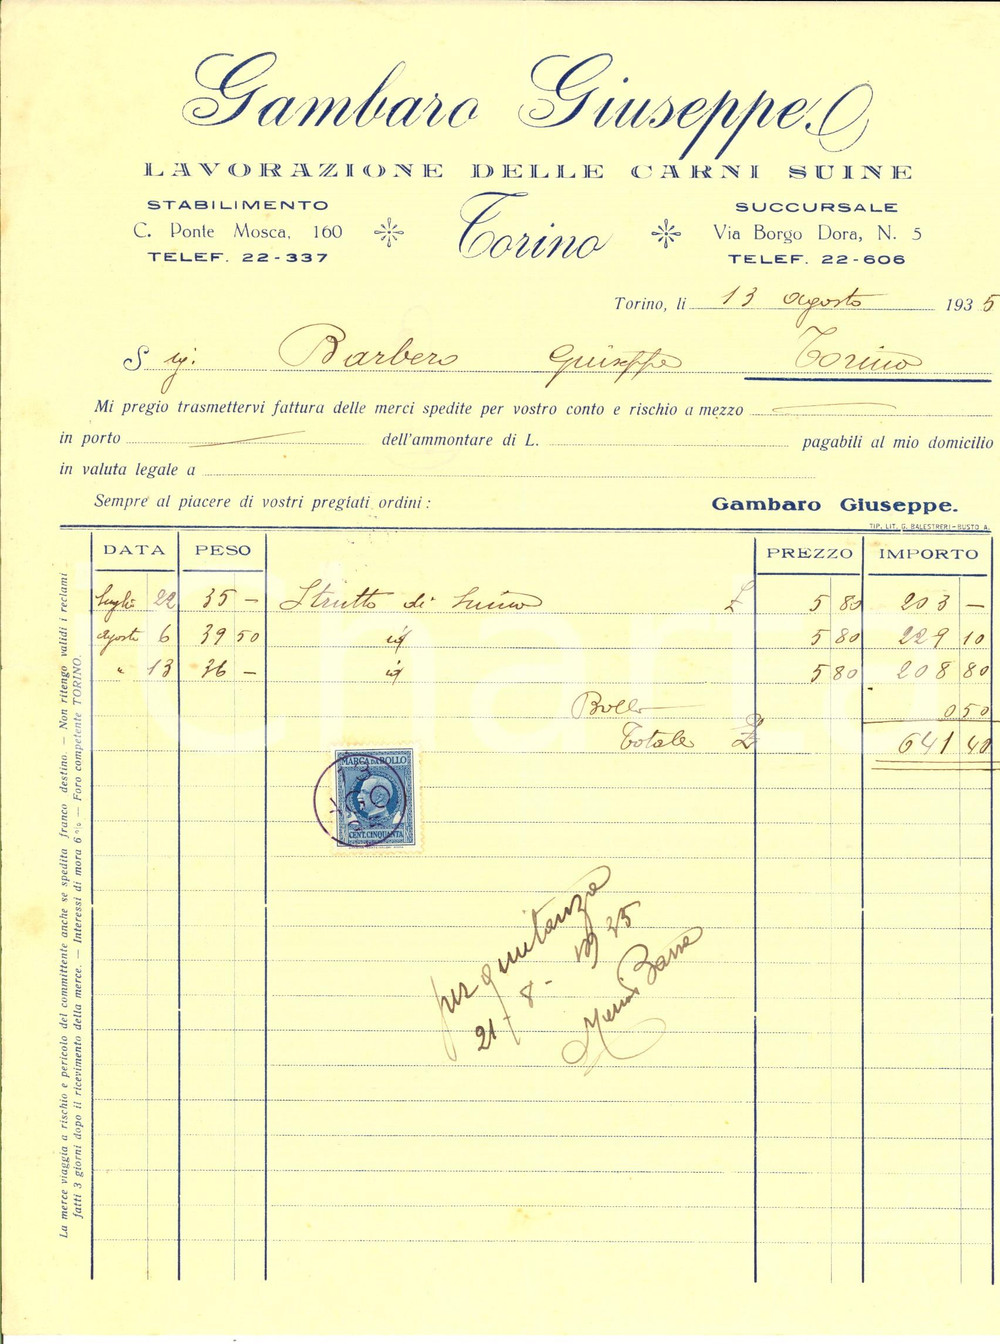 Gambaro Giuseppe
LAVORAZIONE DELLE CARNI SUINE
STABILIMENTO
C. Ponte Mosca, 160
TELEF. 22-337
Torino
SUCCURSALE
Via Borgo Dora, N. 5
TELEF. 22-606
Torino, li 13 agosto 1935
Sig. Barbero Giuseppe Torino
Mi pregio trasmettervi fattura delle merci spedite per vostro conto e rischio a mezzo
in porto dell'ammontare di L. pagabili al mio domicilio
in valuta legale a
Sempre al piacere di vostri pregiati ordini:
Gambaro Giuseppe.
TIP. LIT. G. BALESTRERI-BUSTO A.
DATA PESO PREZZO IMPORTO
luglio 22 35 - Strutto di suino £ 5 80 203 -
agosto 6 39 50 id 5 80 229 10
" 13 36 - id 5 80 208 80
Bollo 0 50
Totale £ 641 40
MARCA DA BOLLO
13
AGO
35
CENT. CINQUANTA
per quitanza
21 - 8 - 1935
La merce viaggia a rischio e pericolo del committente anche se spedita franco destino. — Non ritengo validi i reclami
fatti 3 giorni dopo il ricevimento della merce. — Interessi di mora 6 % — Foro competente TORINO.